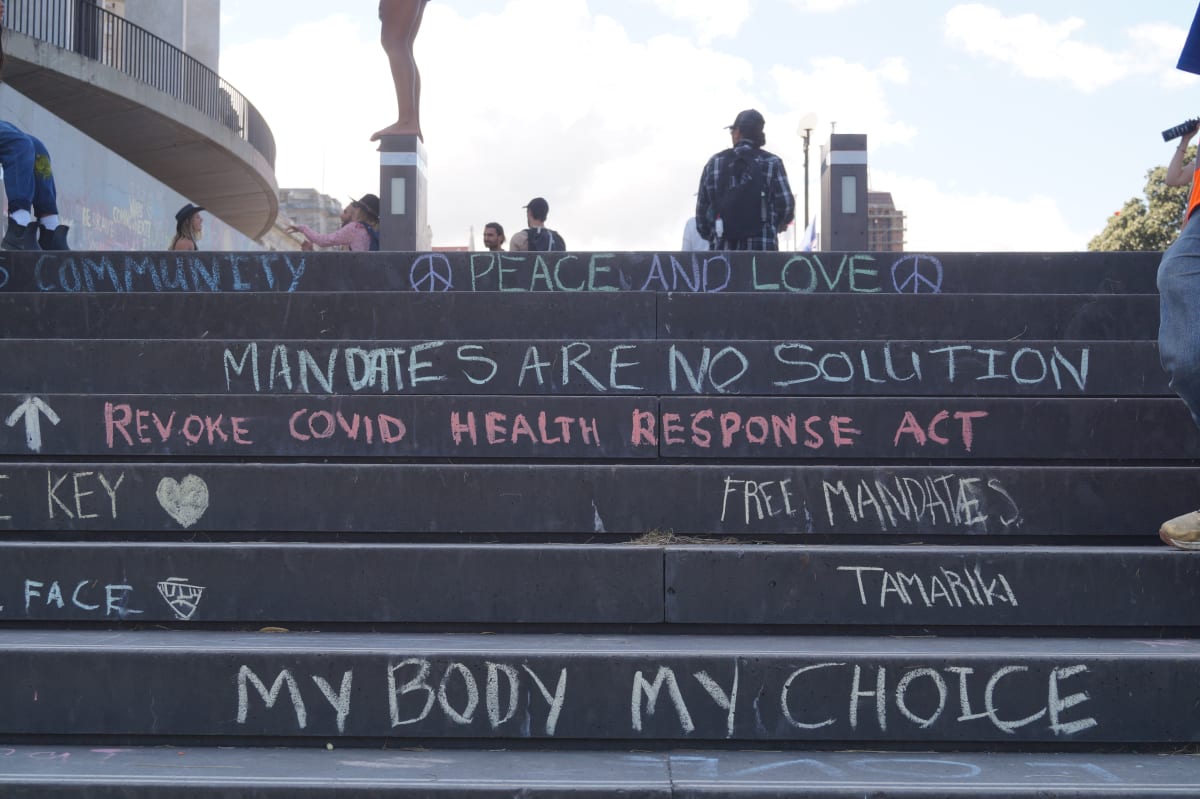 COMMUNITY ☮ PEACE AND LOVE ☮
MANDATES ARE NO SOLUTION
↑ REVOKE COVID HEALTH RESPONSE ACT
KEY ♥ FREE MANDATES
FACE TAMARIKI
MY BODY MY CHOICE
LOVE